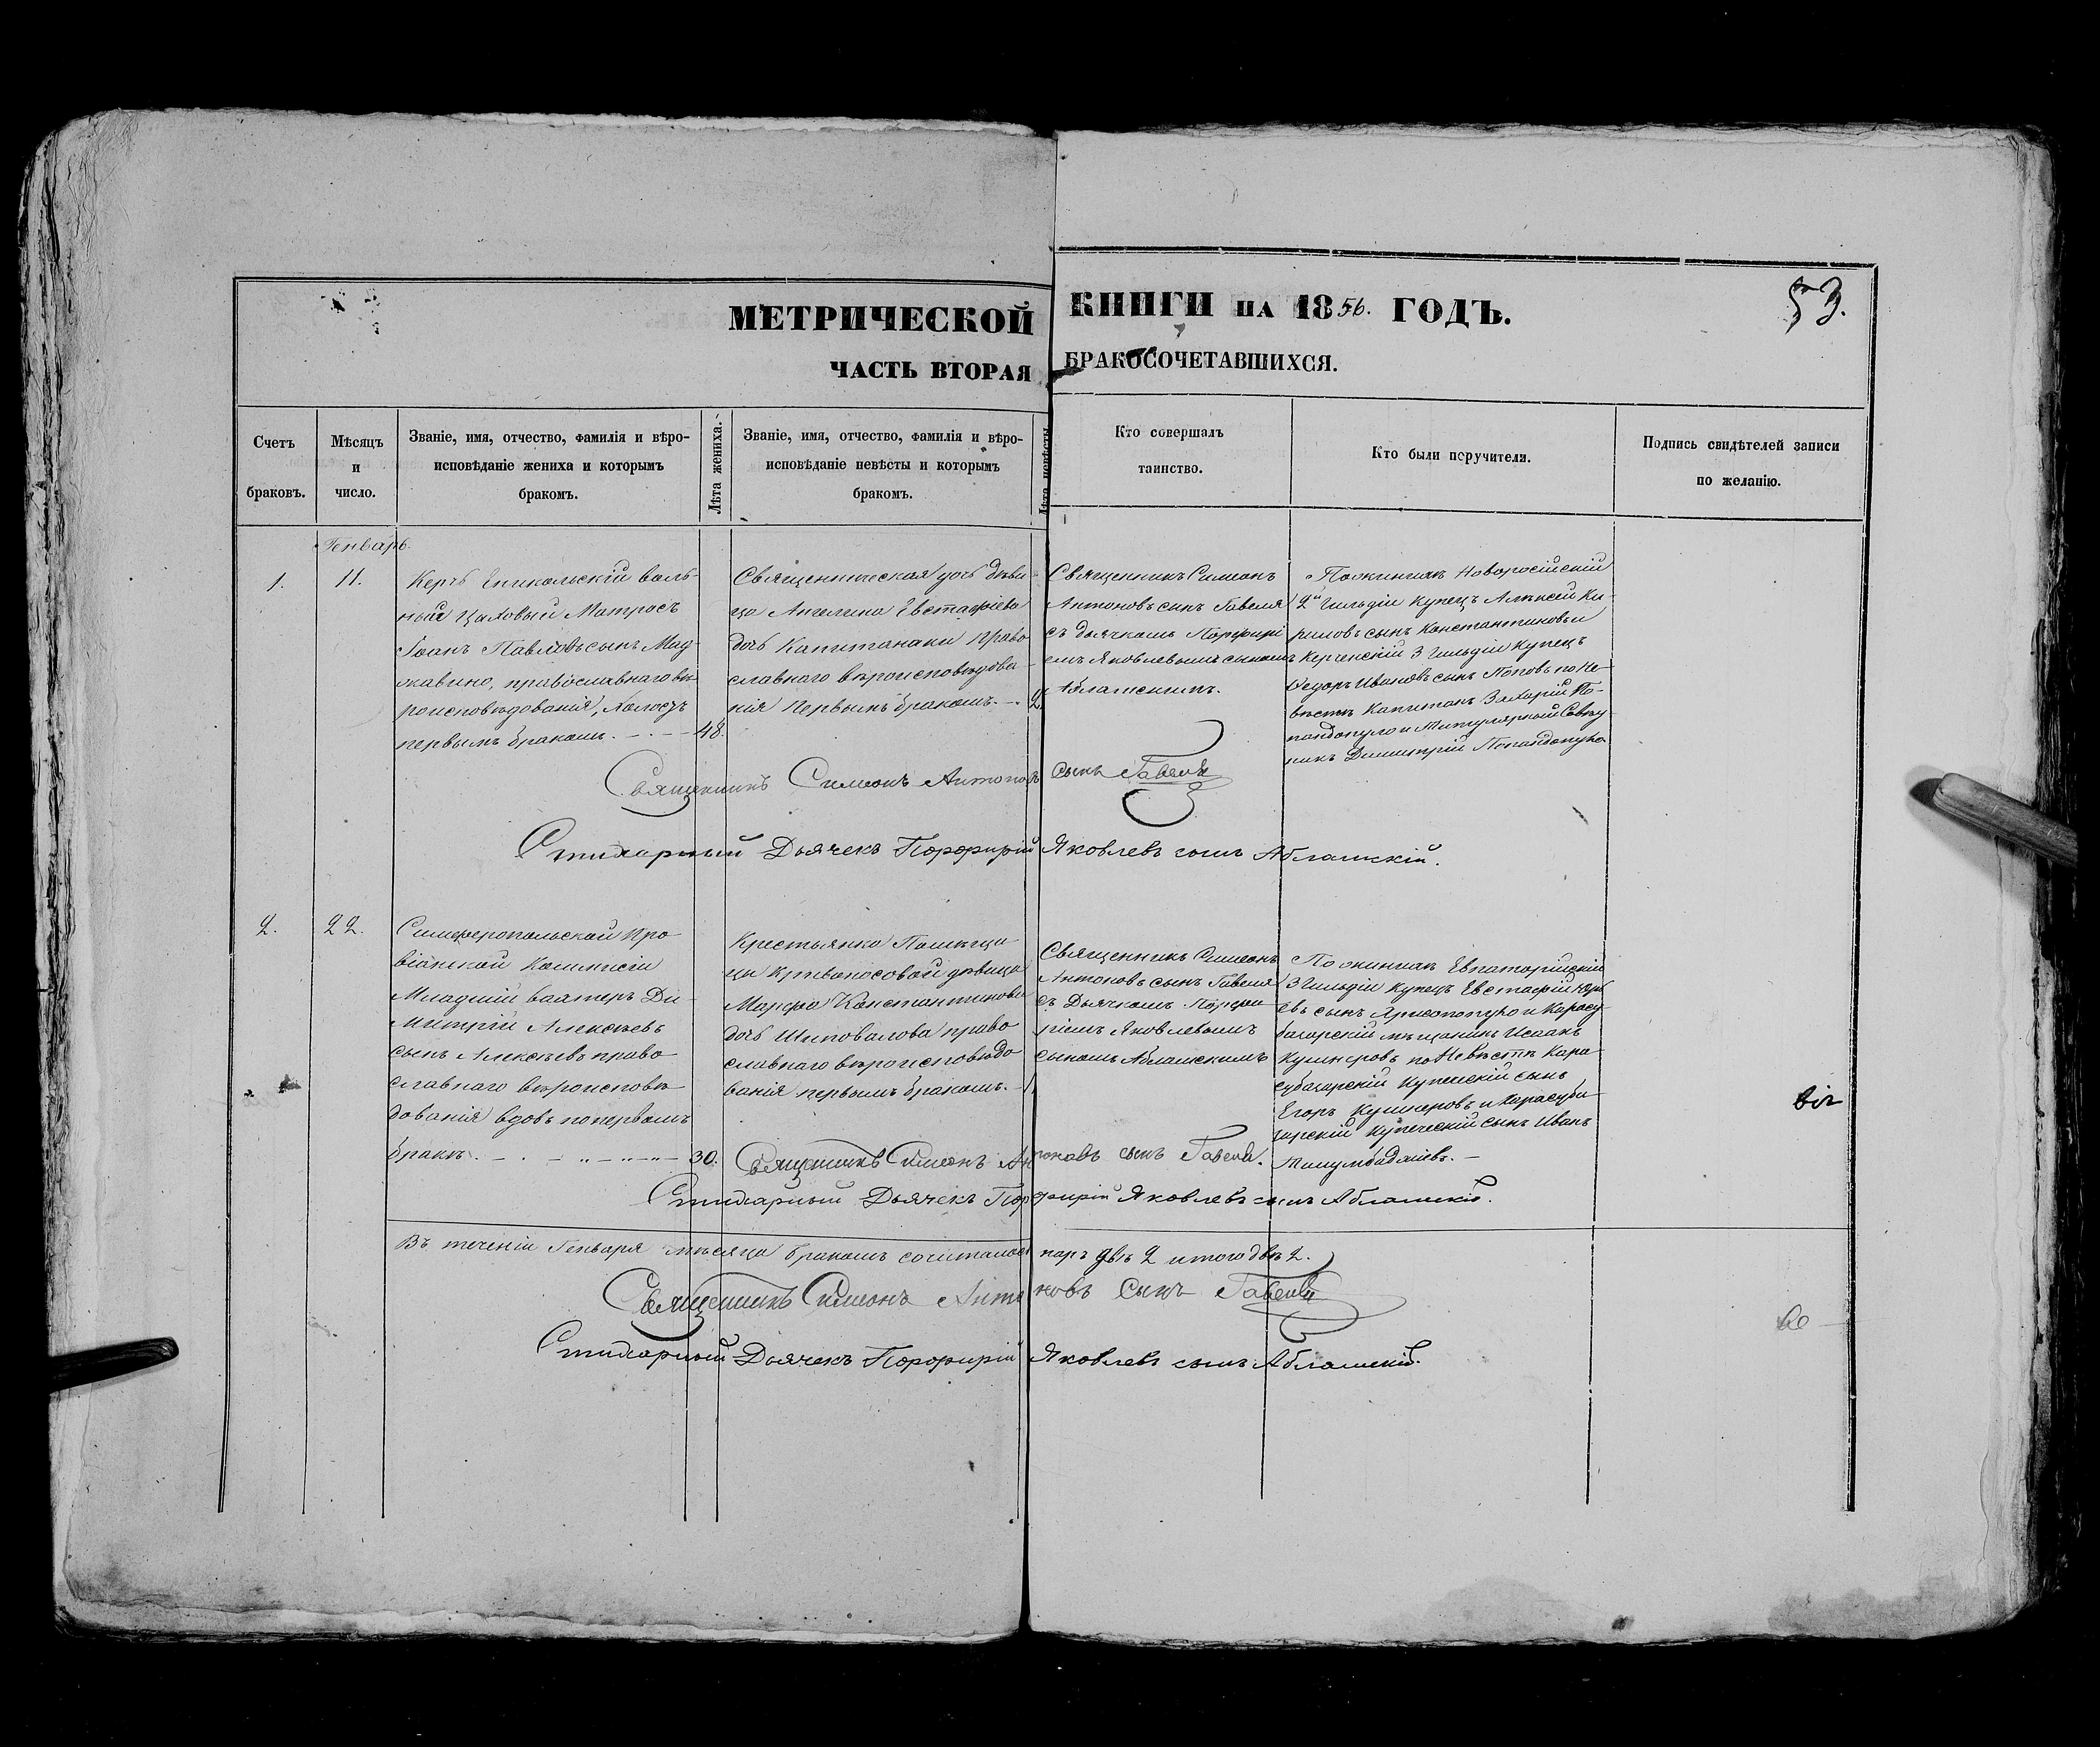 МЕТРИЧЕСКОЙ КНИГИ НА 1856. ГОДЪ.
53.
ЧАСТЬ ВТОРАЯ БРАКОСОЧЕТАВШИХСЯ.
Счетъ
браковъ.
Мѣсяцъ
и
число.
Званіе, имя, отчество, фамилія и вѣро-
исповѣданіе жениха и которымъ
бракомъ.
Лѣта жениха.
Званіе, имя, отчество, фамилія и вѣро-
исповѣданіе невѣсты и которымъ
бракомъ.
Лѣта невѣсты
Кто совершалъ
таинство.
Кто были поручители.
Подпись свидѣтелей записи
по желанію.
Генварь.
1.
11.
Керчь Еникольскій воль-
ный Цаховый Матросъ
Іоанъ Павловъ сынъ Мад-
жавино, православнаго вѣ-
роисповѣдованія, Холостъ
первымъ бракомъ. — . — 48.
Священическая дочь дѣви-
ца Ангелина Евстафіева
дочь Капитанаки право
славнаго вѣроисповѣдова-
нія первымъ бракомъ. — .
Священникъ Симеонъ
Антоновъ сынъ Гавеля
съ дьячкомъ Порфирі
емъ Яковлевымъ сыномъ
Аблашскимъ.
По женихѣ Новоросійскій
2й гильдіи купецъ Алѣксей Ки-
риловъ сынъ Константиновъ и
Керченскій 3 гильдіи Купецъ
Федоръ Ивановъ сынъ Поповъ по Не-
вѣстѣ Капитанъ Захарій По-
пандопуло и Титулярный Совѣт
никъ Димитрій Попандопуло
Священникъ Симеонъ Антоновъ сынъ Гавеля
Стихарный Дьячекъ Порфирій Яковлевъ сынъ Аблашскій.
2.
22.
Симферопольской Про
віанской Коммисіи
Младшій вахтеръ Ди-
митрій Алексѣевъ
сынъ Алексѣевъ право
славнаго вѣроисповѣ-
дованія вдовъ по первомъ
бракѣ. — . — „ — „ — „ — 30.
Крестьянка Помѣщи
цы Кривоносовой дѣвица
Марфа Константинова
дочь Шаповалова право
славнаго вѣроисповѣдо
ванія первымъ бракомъ. —
Священникъ Симеонъ
Антоновъ сынъ Гавеля
съ Дьячкомъ Порфи
ріемъ Яковлевымъ
сыномъ Аблашскимъ
По женихѣ Евпаторійскій
3 гильдіи Купецъ Евстафій
евъ сынъ Христопуло и Карасу-
базарскій мѣщанинъ Исаакъ
Кушнеровъ по Невѣстѣ Кара-
субазарскій Купеческій сынъ
Егоръ Кушнеровъ и Карасуба-
зарскій Купеческій сынъ Иванъ
Священникъ Симеонъ Антоновъ сынъ Гавеля.
Стихарный Дьячекъ Порфирій Яковлевъ сынъ Аблашскій.
Въ теченіи Генваря мѣсяца бракомъ сочиталось паръ двѣ 2 итого двѣ 2.
Священникъ Симеонъ Антоновъ Сынъ Гавеля
Стихарный Дьячекъ Порфирій Яковлевъ сынъ Аблашскій.